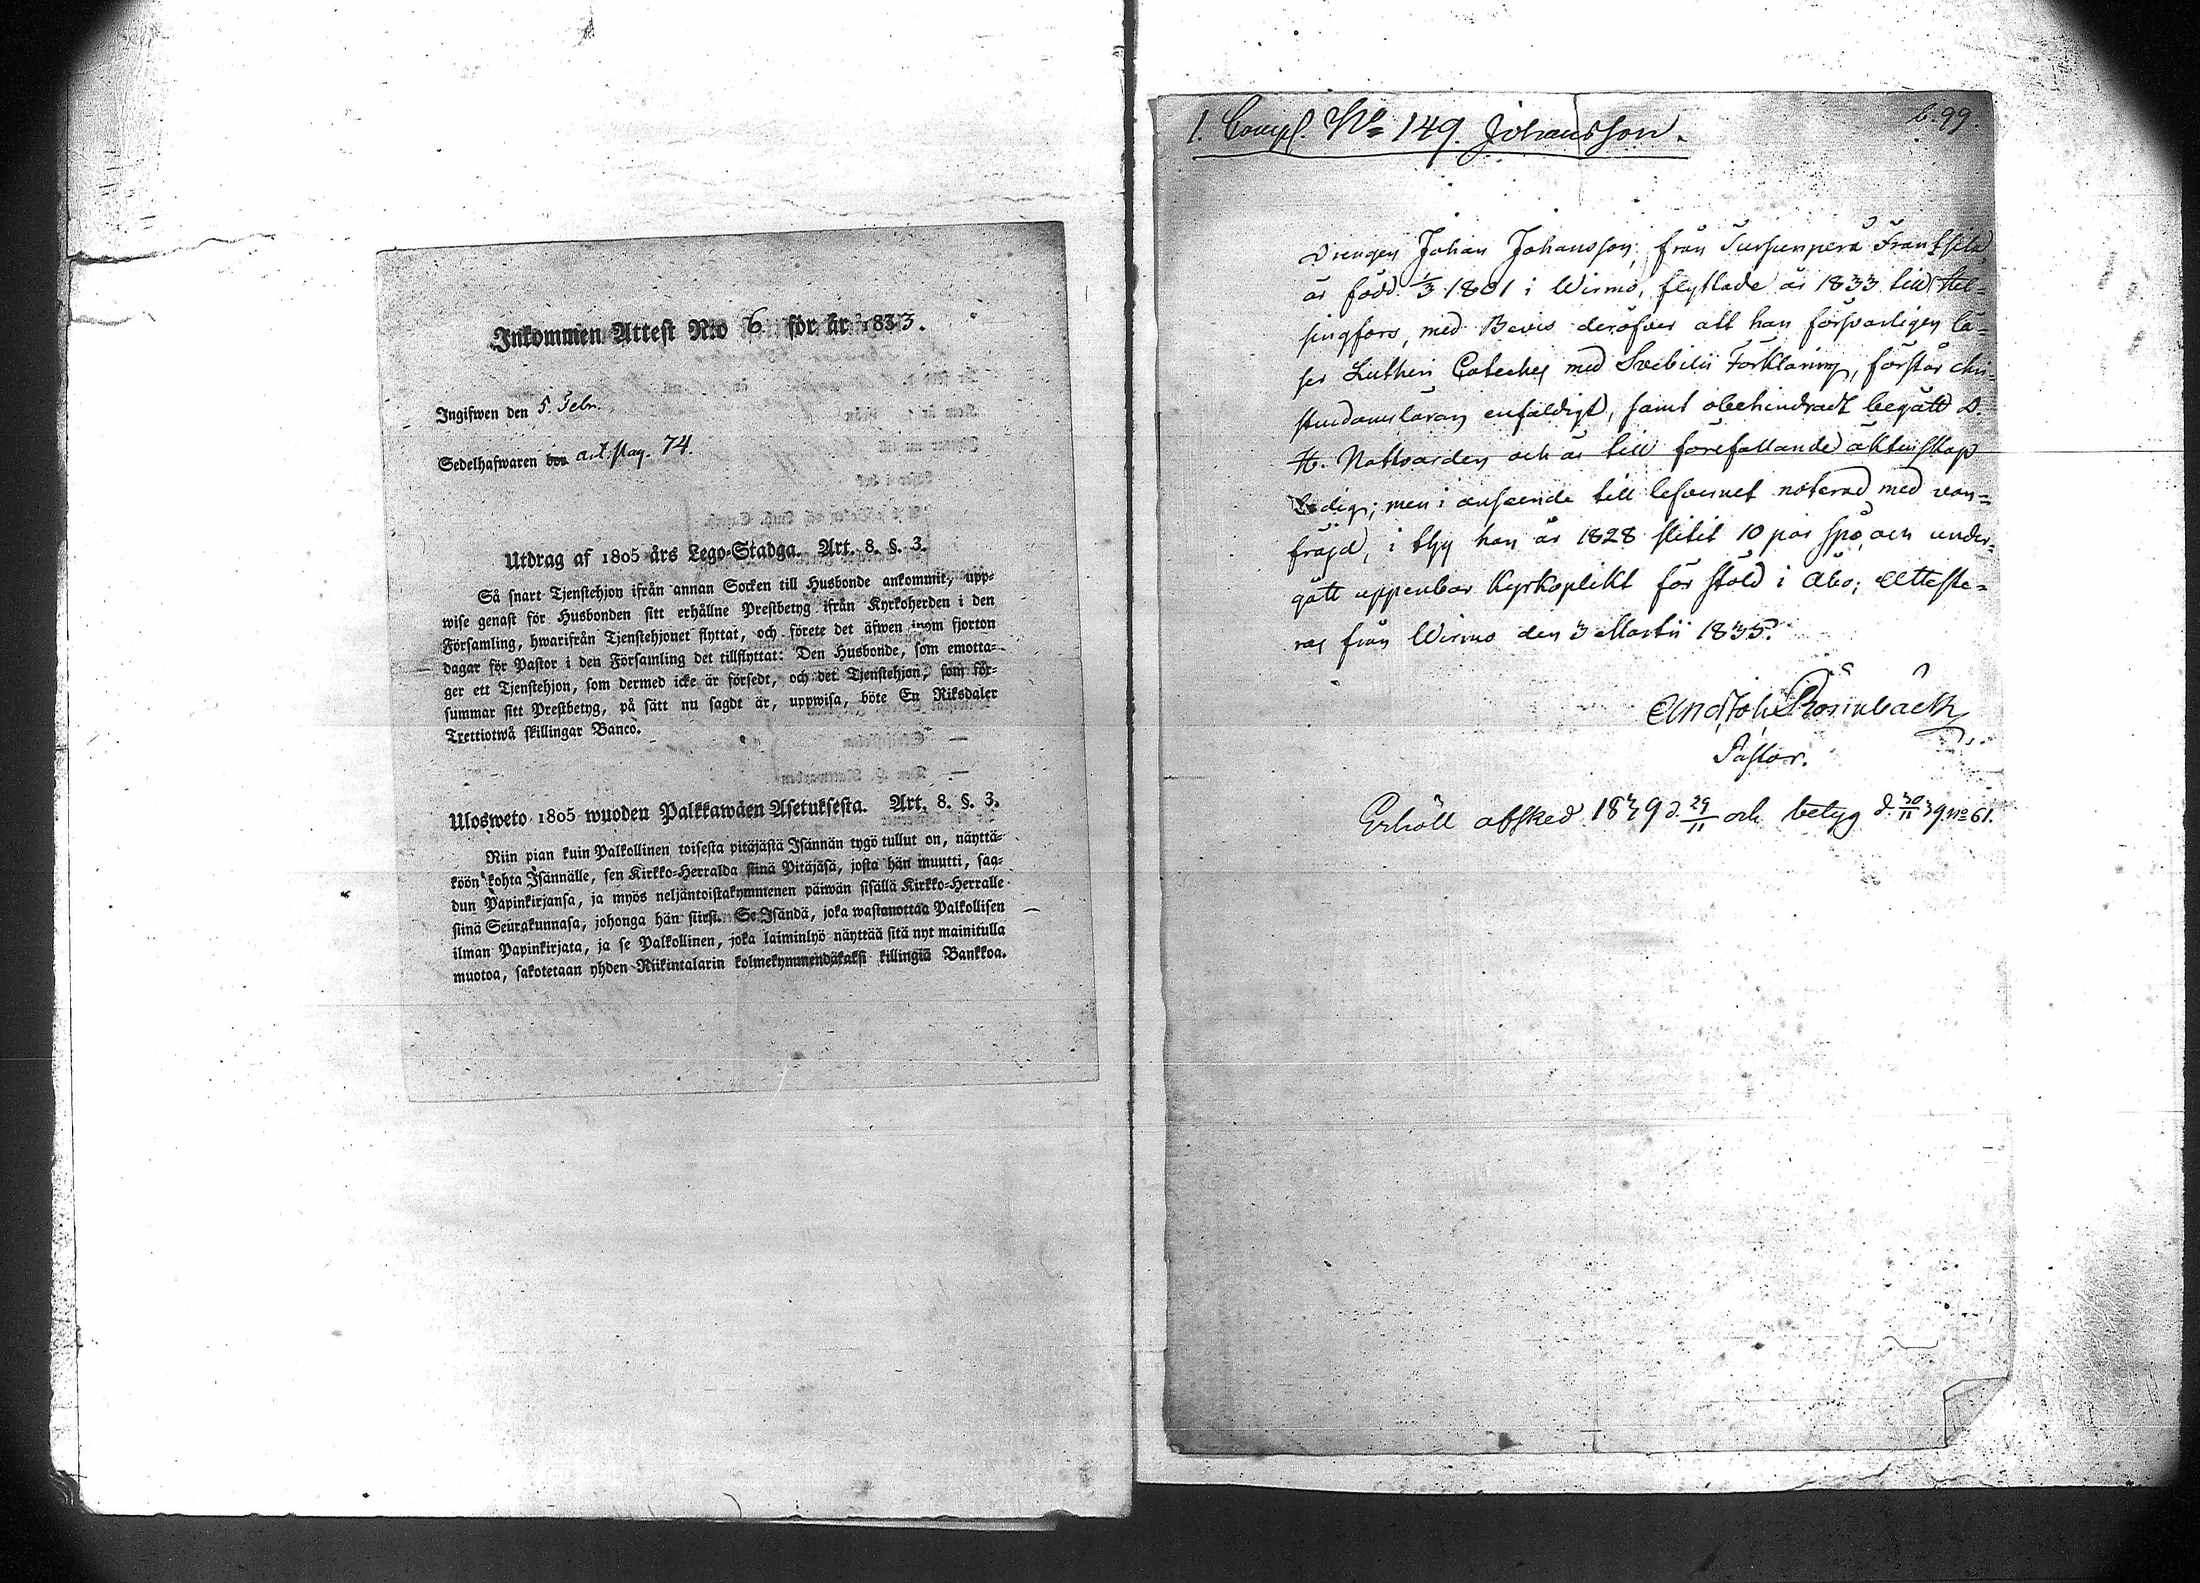 Inkommen Attest N:o 6 för år 1833.
Ingifwen den 5. Febr.
Sedelhafwaren bor art. pag. 74.
Utdrag af 1805 års Lego-Stadga. Art. 8. §. 3.
Så snart Tjenstehjon ifrån annan Socken till Husbonde ankommit, upp-
wise genast för Husbonden sitt erhållne Prestbetyg ifrån Kyrkoherden i den
Församling, hwarifrån Tjenstehjonet flyttat, och förete det äfwen inom fjorton
dagar för Pastor i den Församling det tillflyttat: Den Husbonde, som emotta-
ger ett Tjenstehjon, som dermed icke är försedt, och det Tjenstehjon, som för-
summar sitt Prestbetyg, på sätt nu sagdt är, uppwisa, böte En Riksdaler
Trettiotwå skillingar Banco.
Ulosweto 1805 wuoden Palkkawäen Asetuksesta. Art. 8. §. 3.
Niin pian kuin Palkollinen toisesta pitäjästä Isännän tygö tullut on, näyttä-
köön kohta Isännälle, sen Kirkko-Herralda siinä Pitäjäsä, josta hän muutti, saa-
dun Papinkirjansa, ja myös neljäntoistakymmenen päiwän sisällä Kirkko-Herralle
siinä Seurakunnasa, johonga hän siirsi. Se Isändä, joka wastanottaa Palkollisen
ilman Papinkirjata, ja se Palkollinen, joka laiminlyö näyttää sitä nyt mainitulla
muotoa, sakotetaan yhden Riikintalarin kolmekymmendäkaksi killingiä Bankkoa.
1. Comp. No 149. Johansson.
b. 99.
Drengen Johan Johansson, från Frantsila
är född 1/3 1801 i Wirmo, flyttade år 1833 till Hel-
singfors, med Bevis deröfver att han försvarligen lä-
ser Lutheri Cateches med Svebilii Förklaring, förstår chri-
stendomsläran enfaldigt, samt obehindradt begått D.
H. Nattvarden och är till förefallande äktenskap
ledig; men i anseende till lefvernet noterad med van-
fräjd, i thy han år 1828 slitit 10 par spö, och under-
gått uppenbar Kyrkoplikt för stöld i Åbo; Atteste-
ras från Wirmo den 3 Martii 1835.
Pastor.
Erhöll afsked 1839 d. 29/11 och betyg d. 30/11 39 no 61.